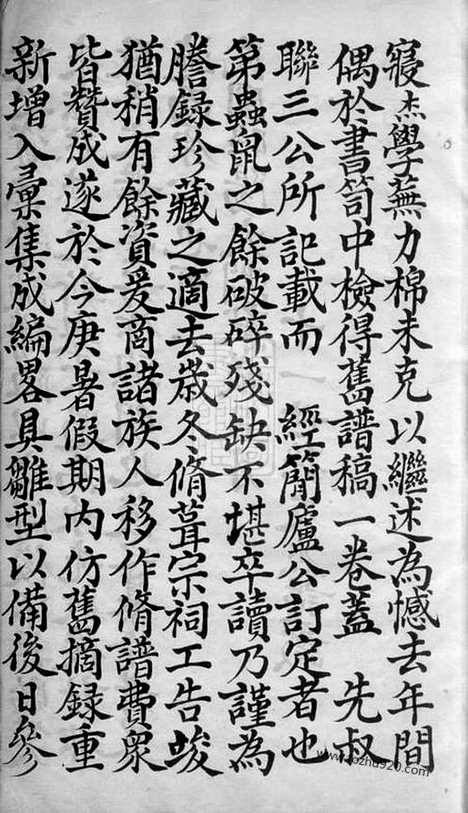 寢杰學蕪力棉未克以繼述為憾去年間
偶於書笥中檢得舊譜稿一卷蓋 先叔
聯三公所記載而 經簡廬公訂定者也
第蟲鼠之餘破碎殘缺不堪卒讀乃謹為
謄錄珍藏之適去歲冬脩葺宗祠工告竣
猶稍有餘資爰商諸族人移作脩譜費衆
皆贊成遂於今庚暑假期內仿舊摘録重
新增入彙集成編畧具雛型以備後日參
www.rozhu920.com